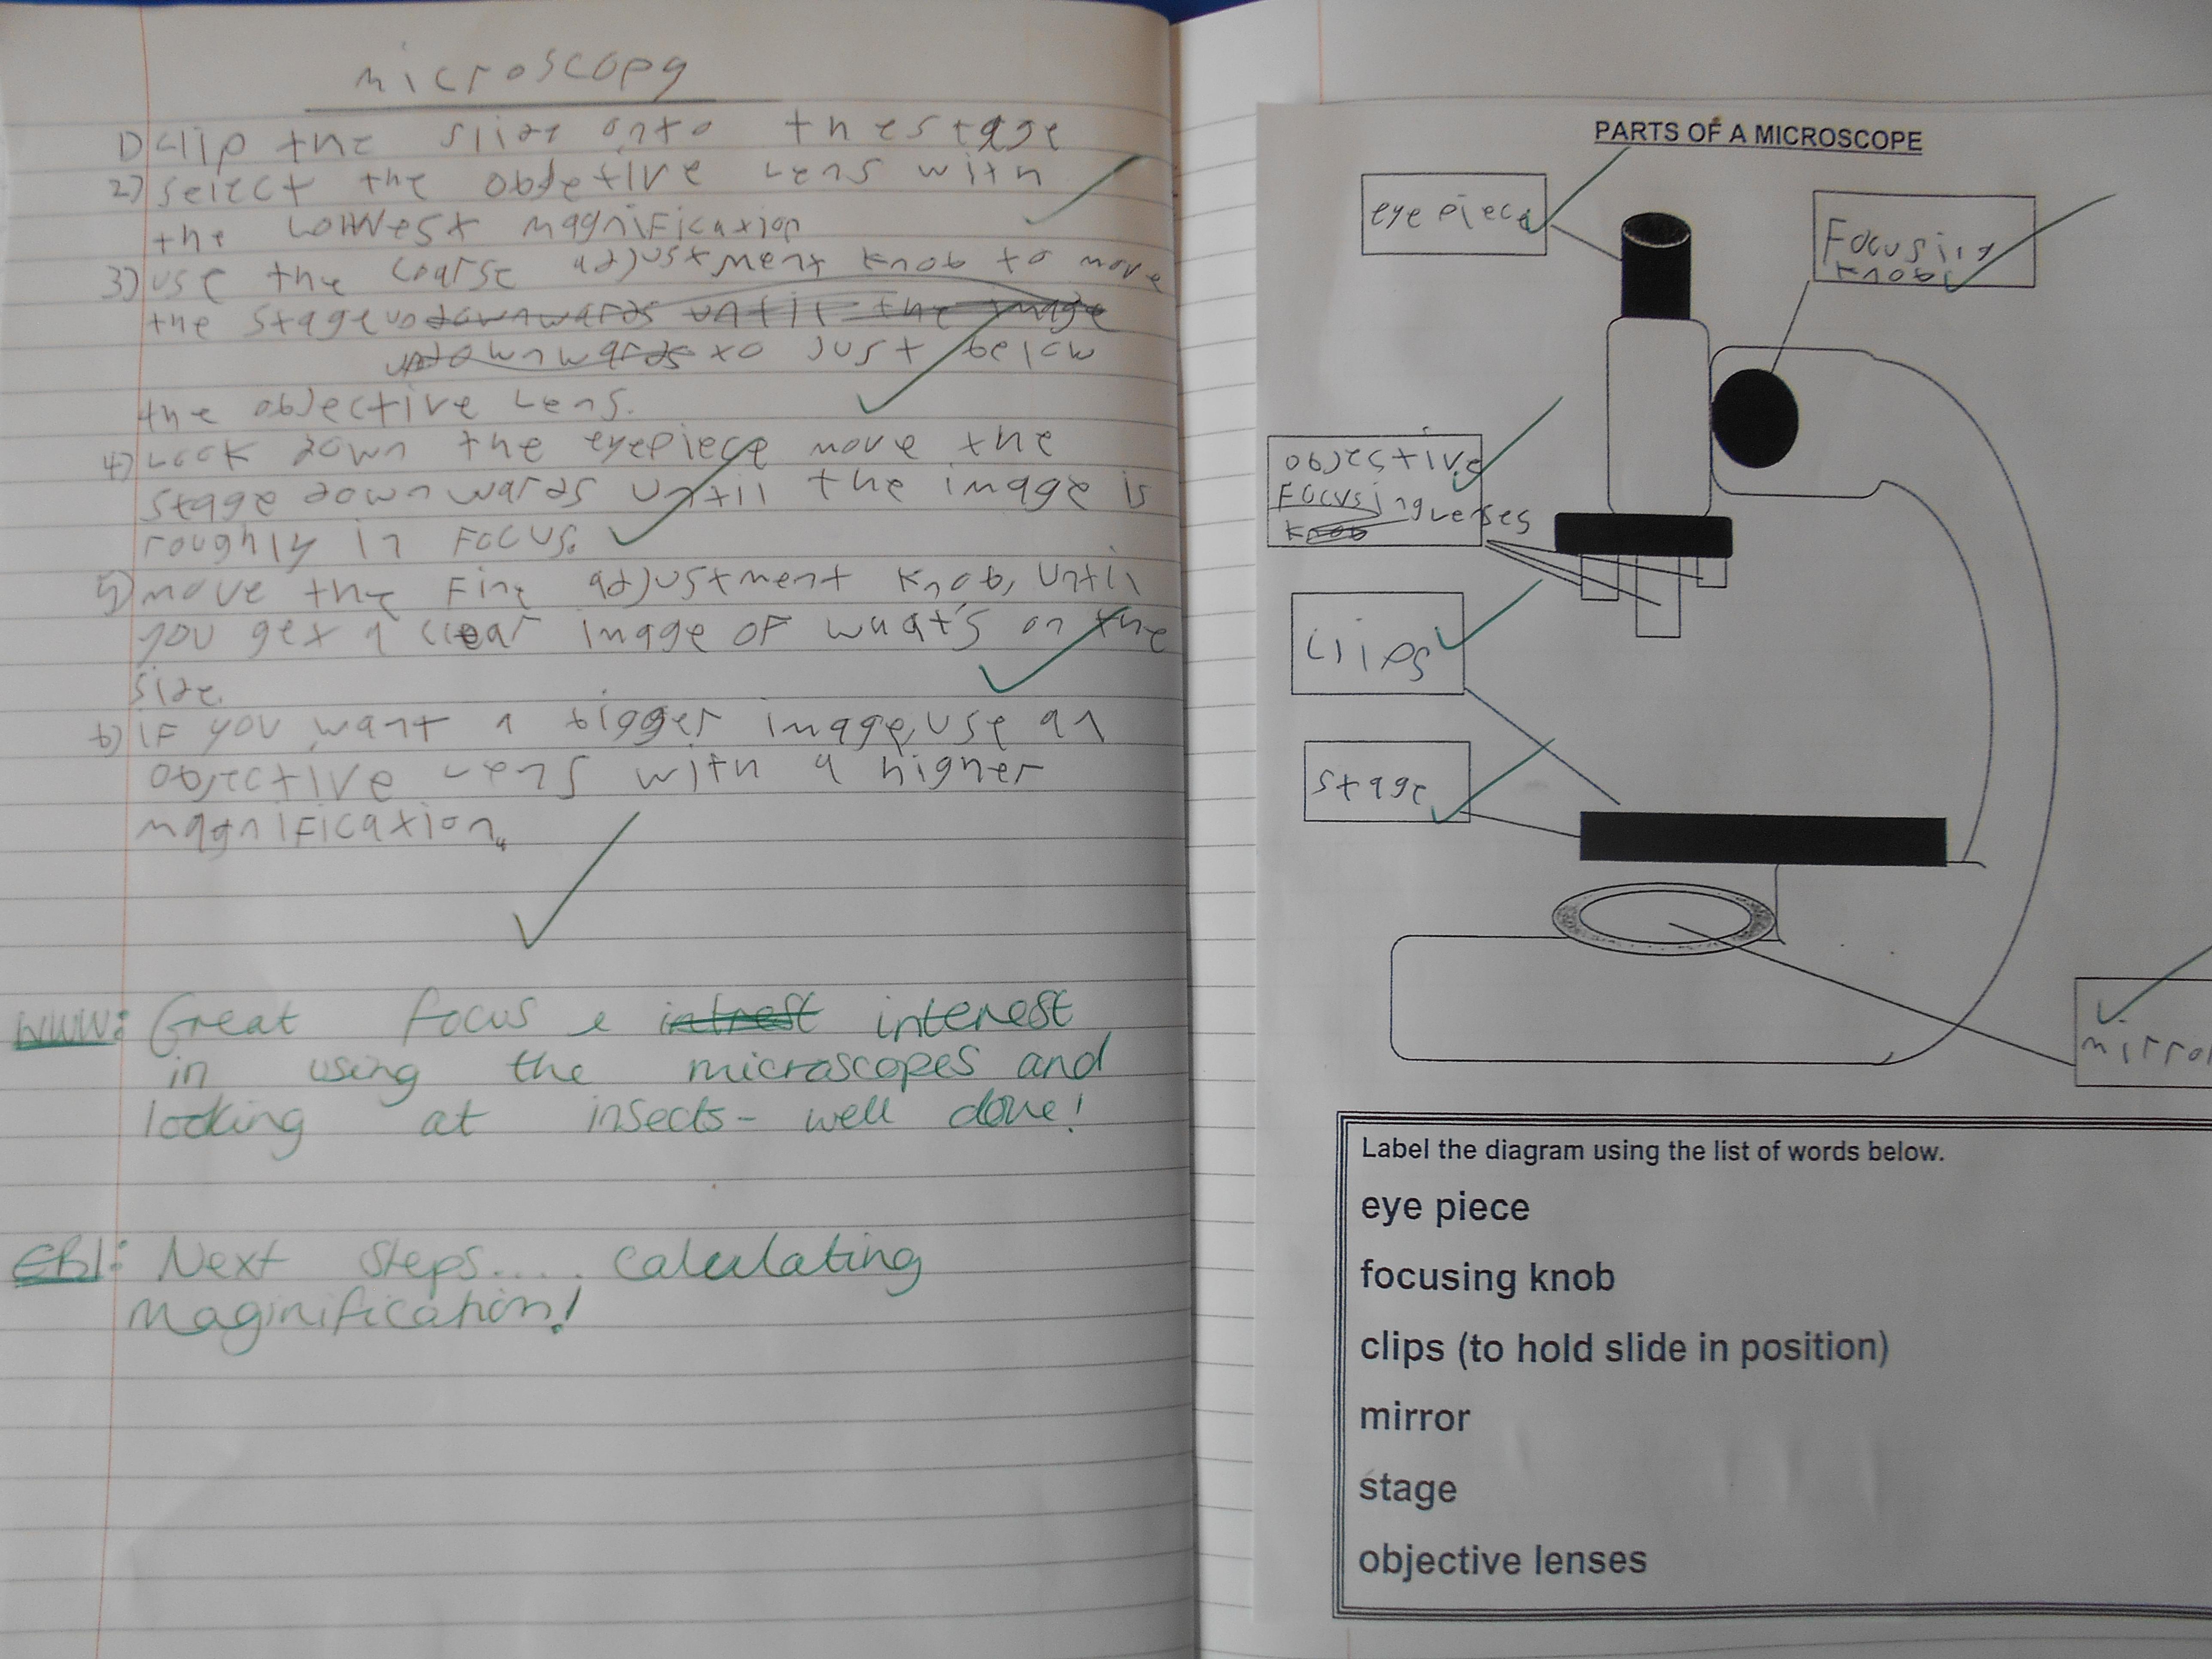 microscopy
1) clip the slide onto the stage
2) select the objetive Lens with
the lowest magnification
3) use the coarse adjustment knob to move
the stage up downwards until the image
downwards to just below
the objective Lens.
4) Look down the eyepiece move the
stage downwards until the image is
roughly in Focus.
5) move the Fine adjustment knob, until
you get a clear image of what's on the
slide.
6) IF you want a bigger image, use an
objective Lens with a higher
magnification.
WWW: Great focus & intrest interest
in using the microscopes and
looking at insects - well done!
EBI: Next steps.... calculating
Maginification!
PARTS OF A MICROSCOPE
eye piece
Focusing
knob
objective
Focusing Lenses
knob
clips
stage
mirror
Label the diagram using the list of words below.
eye piece
focusing knob
clips (to hold slide in position)
mirror
stage
objective lenses